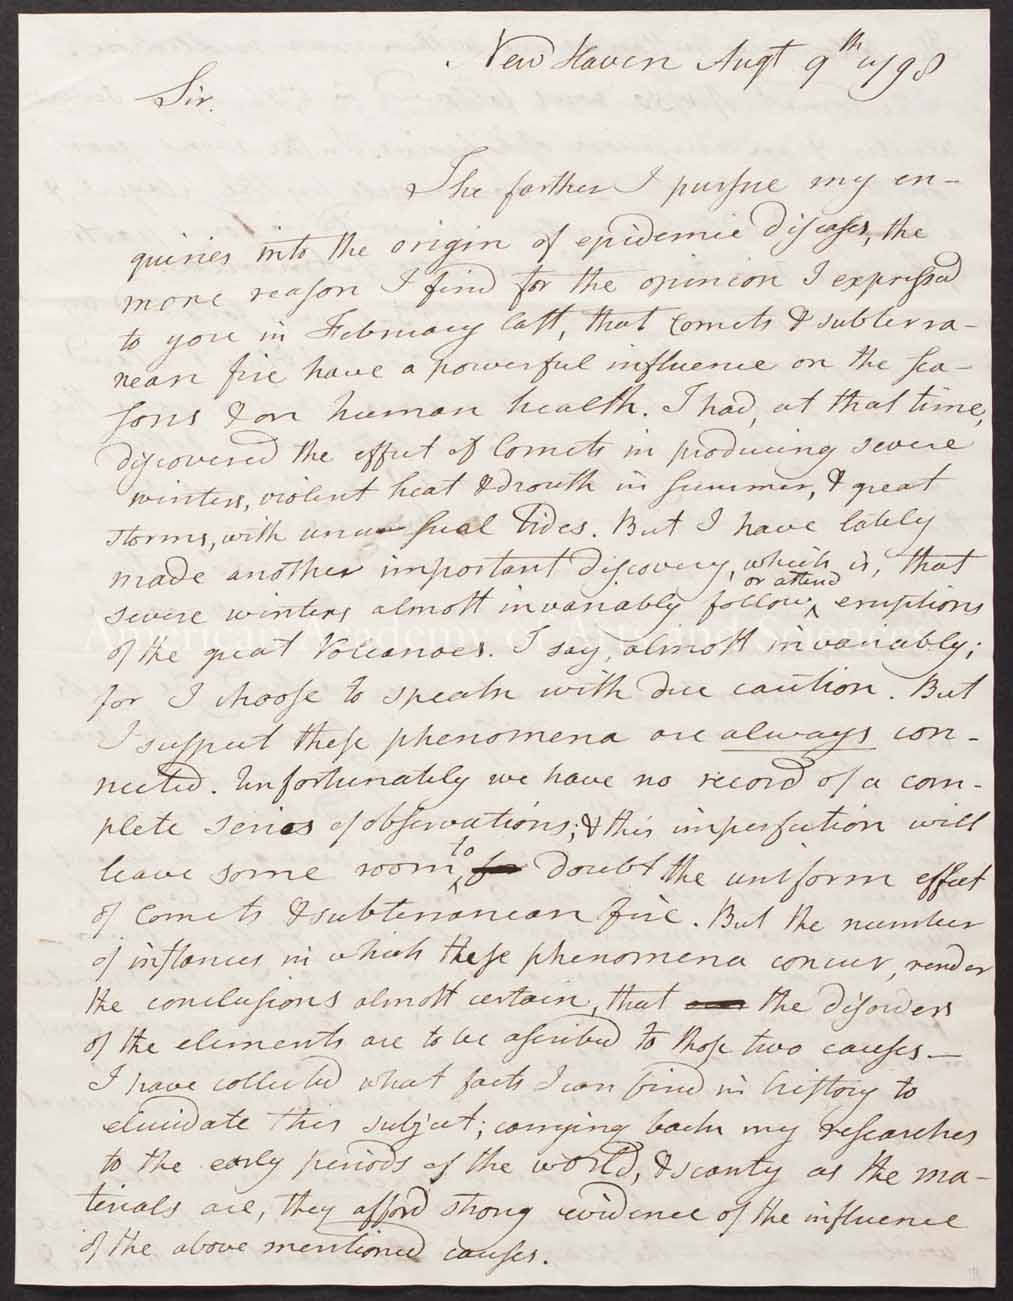 New Haven Augt 9th 1798
Sir.
The farther I pursue my en-
quiries into the origin of epidemic diseases, the
more reason I find for the opinion I expressed
to you in February last, that Comets & subterra-
nean fire have a powerful influence on the sea-
sons & on human health. I had, at that time,
discovered the effect of Comets in producing severe
winters, violent heat & drouth in summer, & great
storms, with unusual Tides. But I have lately
made another important discovery, which is, that
or attend
severe winters almost invariably follow eruptions
of the great Volcanoes. I say, almost invariably;
for I choose to speak with due caution. But
I suspect these phenomena are always con-
nected. Unfortunately we have no record of a com-
plete series of observations; & this imperfection will
leave some room to doubt the uniform effect
of Comets & subterranean fire. But the number
of instances in which these phenomena concur, render
the conclusions almost certain, that the disorders
of the elements are to be ascribed to those two causes—
I have collected what facts I can find in history to
elucidate this subject; carrying back my researches
to the early periods of the world, & scanty as the ma-
terials are, they afford strong evidence of the influence
of the above mentioned causes.
American Academy of Arts and Sciences